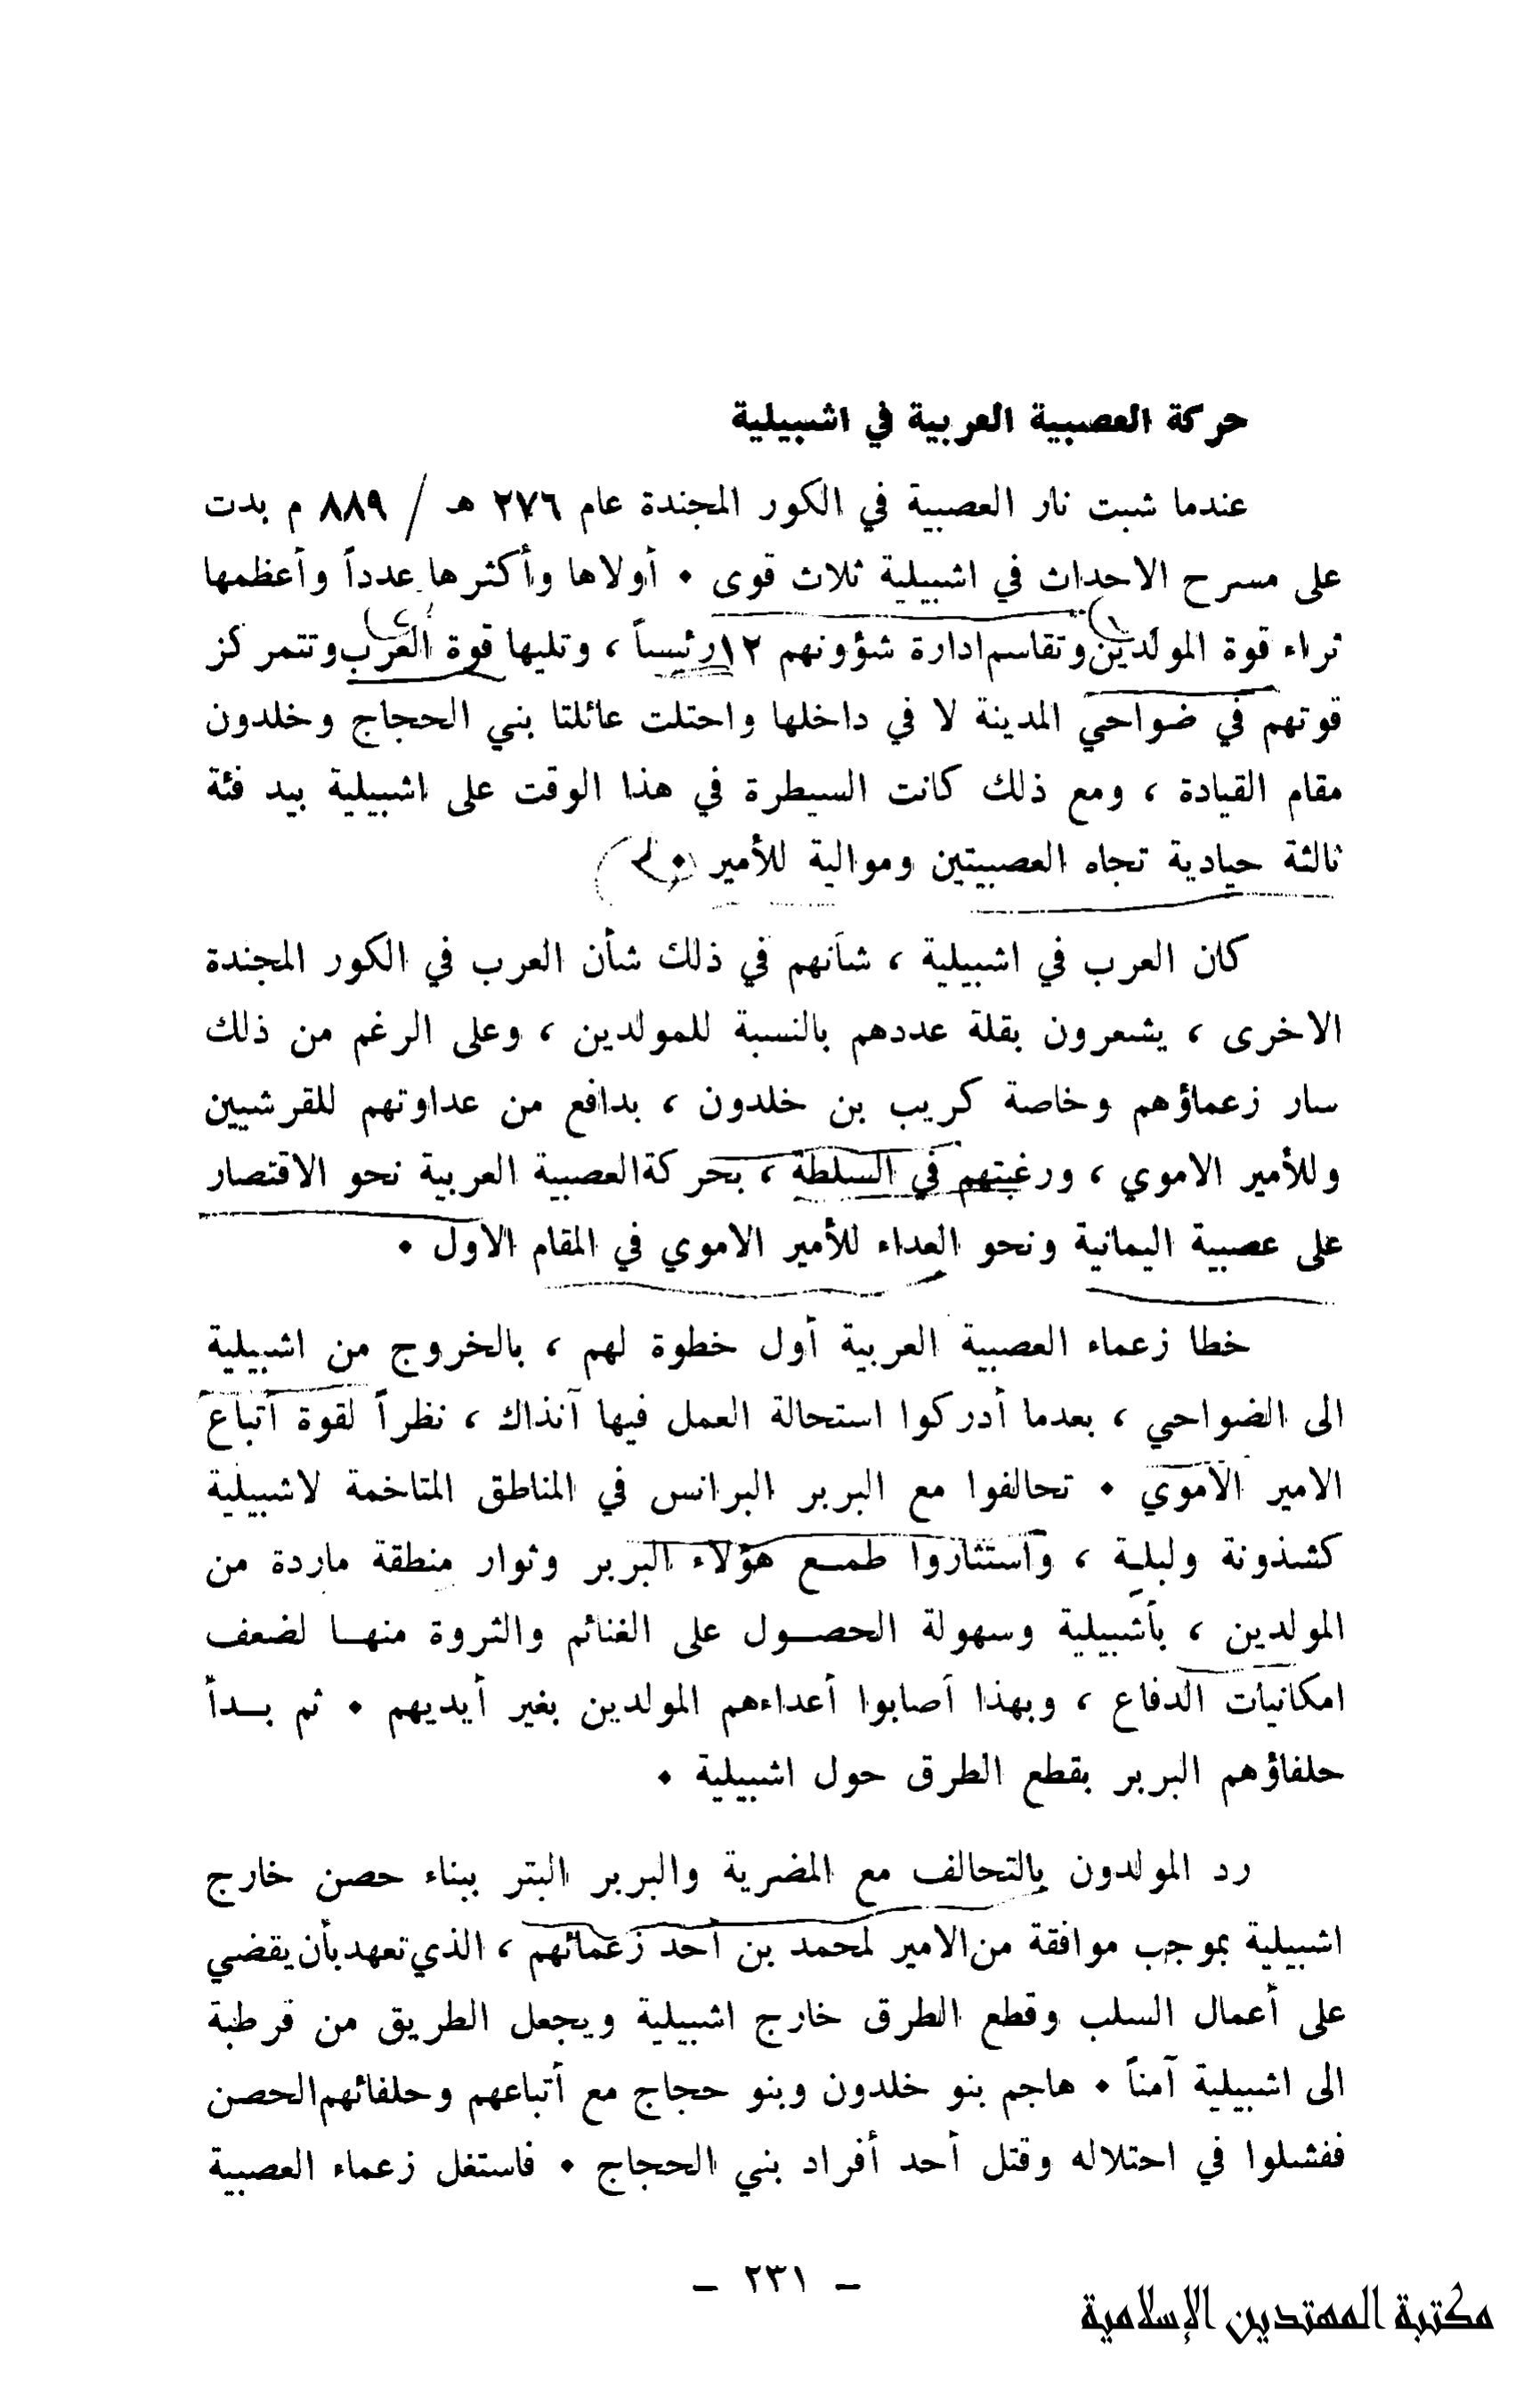 حركة العصبية العربية في اشبيلية
عندما شبت نار العصبية في الكور المجندة عام ٢٧٦ هـ / ٨٨٩ م بدت
على مسرح الاحداث في اشبيلية ثلاث قوى ٠ أولاها وأكثرها عدداً وأعظمها
ثراء قوة المولدين وتقاسم ادارة شؤونهم ١٢ رئيساً ، وتليها قوة العرب وتتمركز
قوتهم في ضواحي المدينة لا في داخلها واحتلت عائلتا بني الحجاج وخلدون
مقام القيادة ، ومع ذلك كانت السيطرة في هذا الوقت على اشبيلية بيد فئة
ثالثة حيادية تجاه العصبيتين وموالية للأمير ٠
كان العرب في اشبيلية ، شأنهم في ذلك شأن العرب في الكور المجندة
الاخرى ، يشعرون بقلة عددهم بالنسبة للمولدين ، وعلى الرغم من ذلك
سار زعماؤهم وخاصة كريب بن خلدون ، بدافع من عداوتهم للقرشيين
وللأمير الاموي ، ورغبتهم في السلطة ، بحركة العصبية العربية نحو الاقتصار
على عصبية اليمانية ونحو العداء للأمير الاموي في المقام الاول ٠
خطا زعماء العصبية العربية أول خطوة لهم ، بالخروج من اشبيلية
الى الضواحي ، بعدما أدركوا استحالة العمل فيها آنذاك ، نظراً لقوة أتباع
الامير الاموي ٠ تحالفوا مع البربر البرانس في المناطق المتاخمة لاشبيلية
كشذونة ولبلـة ، واستثاروا طمــع هؤلاء البربر وثوار منطقة ماردة من
المولدين ، بأشبيلية وسهولة الحصــول على الغنائم والثروة منهــا لضعف
امكانيات الدفاع ، وبهذا أصابوا أعداءهم المولدين بغير أيديهم ٠ ثم بــدأ
حلفاؤهم البربر بقطع الطرق حول اشبيلية ٠
رد المولدون بالتحالف مع المضرية والبربر البتر ببناء حصن خارج
اشبيلية بموجب موافقة من الامير لمحمد بن أحد زعمائهم ، الذي تعهد بأن يقضي
على أعمال السلب وقطع الطرق خارج اشبيلية ويجعل الطريق من قرطبة
الى اشبيلية آمناً ٠ هاجم بنو خلدون وبنو حجاج مع أتباعهم وحلفائهم الحصن
ففشلوا في احتلاله وقتل أحد أفراد بني الحجاج ٠ فاستغل زعماء العصبية
– ٢٣١ –
مكتبة المهتدين الإسلامية